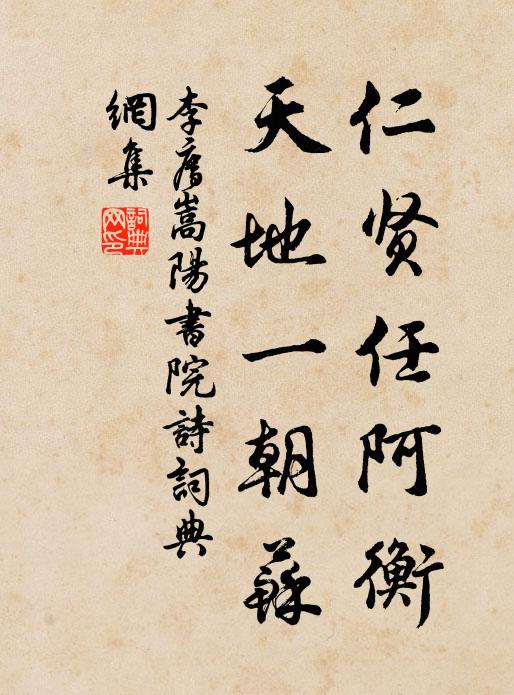 仁贤任阿衡
天地一朝蘇
李廌嵩陽書院詩詞典
網集
詞典
网印